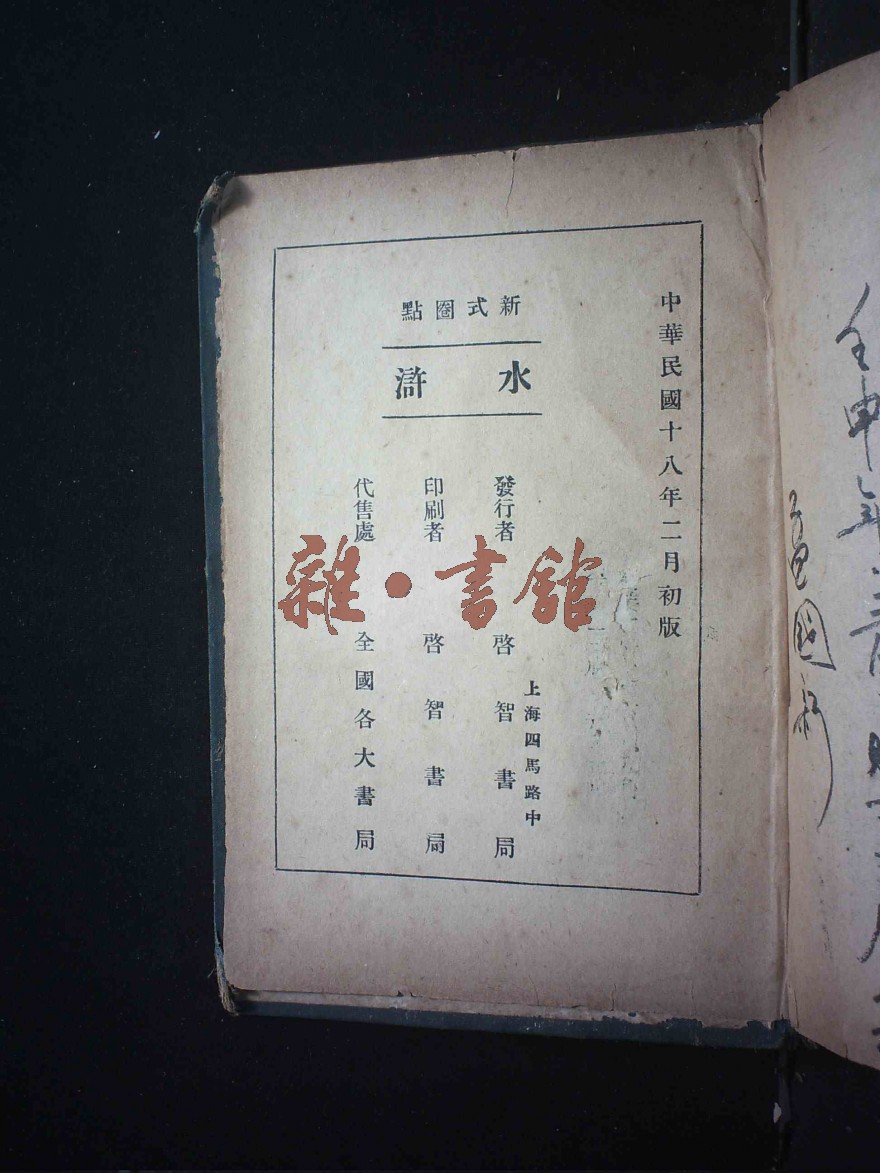 中華民國十八年二月初版
新式圈點
水滸
上海四馬路中
發行者 啓智書局
印刷者 啓智書局
代售處 全國各大書局
雜·書館
壬申年